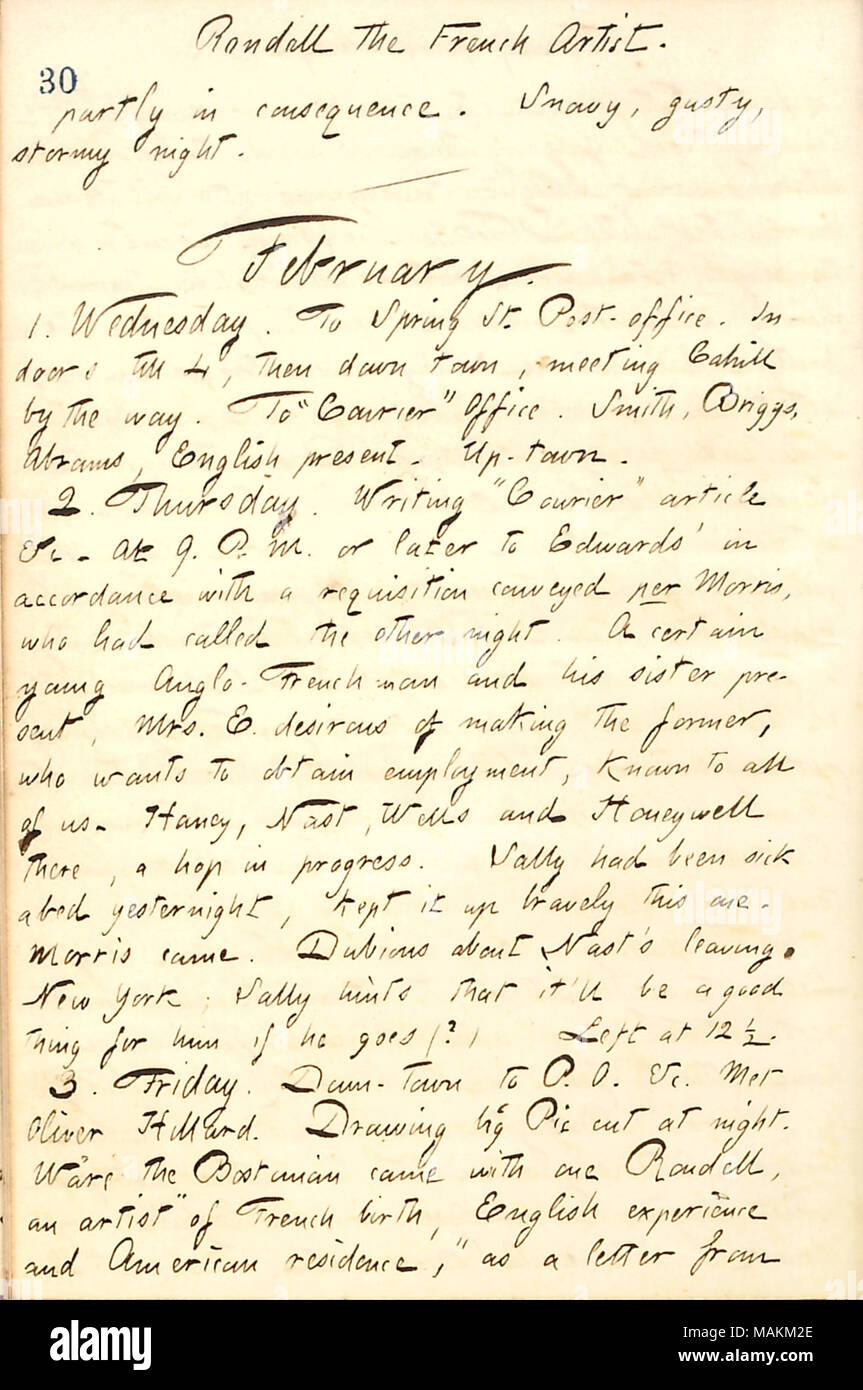 Rondell the French Artist.
30
partly in consequence. Snowy, gusty,
stormy night.
February.
1. Wednesday. To Spring St. Post-office. In
doors till 4, then down town, meeting Cahill
by the way. To "Courier" Office. Smith, Briggs,
Abrams, English present. Up-town.
2. Thursday. Writing "Courier" article
&c. At 9. P. M. or later to Edwards' in
accordance with a requisition conveyed per Morris,
who had called the other night. A certain
young Anglo-Frenchman and his sister pre-
sent, Mrs. E. desirous of making the former,
who wants to obtain employment, known to all
of us. Haney, Nast, Wells and Honeywell
there, a hop in progress. Sally had been sick
abed yesternight, kept it up bravely this one.
Morris came. Dubious about Nast's leaving
New York; Sally hints that it'll be a good
thing for him if he goes (?) Left at 12 ½.
3. Friday. Down-Town to P. O. &c. Met
Oliver Hillard. Drawing Pic cut at night.
Ware the Bostonian came with one Rondell,
an artist "of French birth, English experience
and American residence," as a letter from
alamy
Image ID: MAKM2E
www.alamy.com